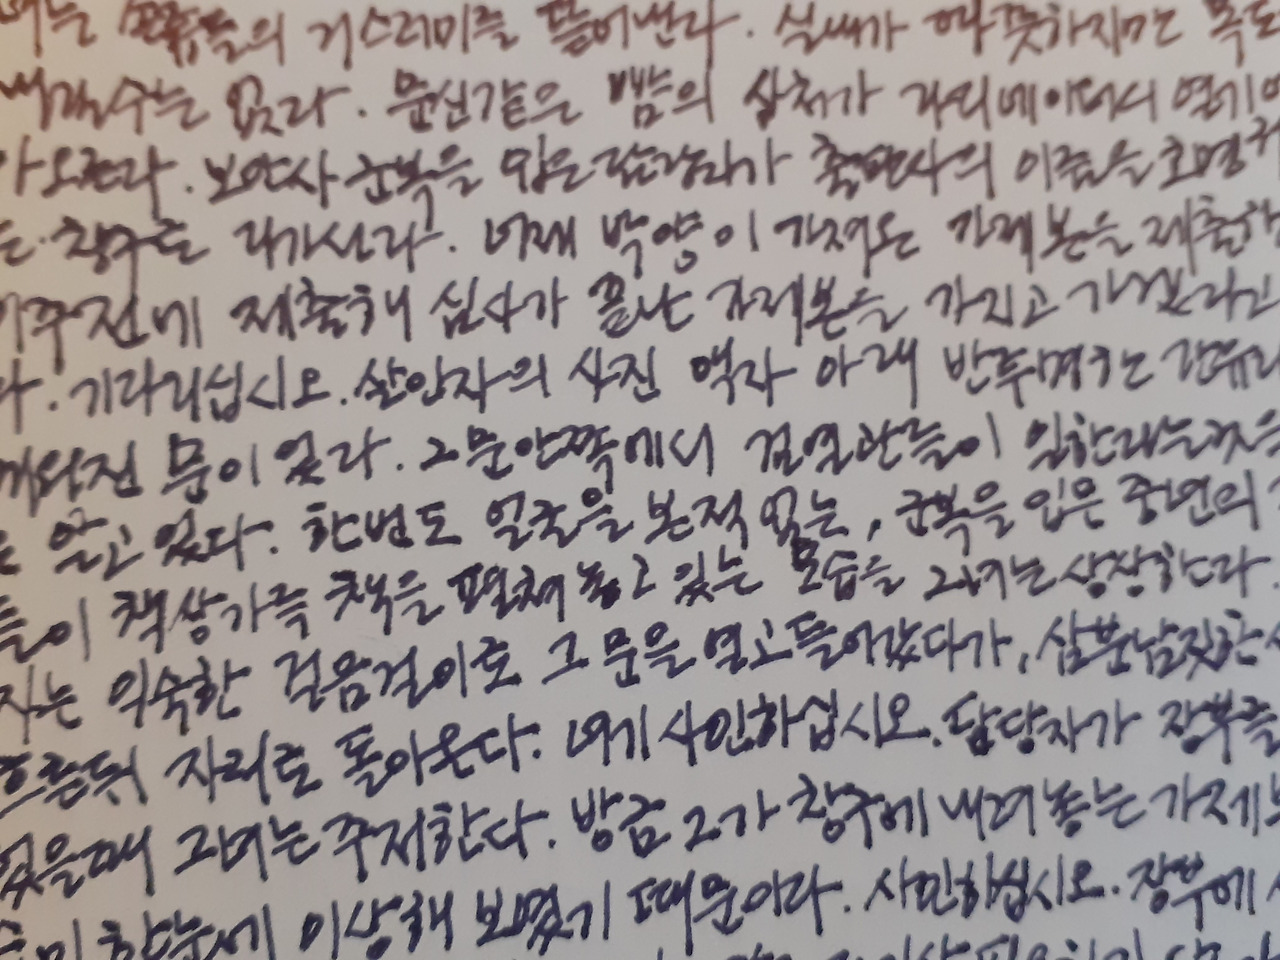 거스러미를 뜯어낸다. 실내가 따뜻하지만 목도
수는 없다. 문신같은 뺨의 상처가 라디에이터의 열기에
아오른다. 보안사 군복을 입은 담당자가 출판사의 이름을 호명
는 창구로 다가선다. 박양이 가져온 가제본을 제출한
이주전에 제출해 심사가 끝난 가제본을 가지고 가겠다고
다. 기다리십시오. 살인자의 사진 액자 아래 반투명한 간유리
끼워진 문이 있다. 그 문안쪽에서 검열관들이 일한다는것을
는 알고 있다. 한번도 얼굴을 본적 없는, 군복을 입은 중년의
들이 책상가득 책을 펼쳐놓고 있는 모습을 그녀는 상상한다.
자는 익숙한 걸음걸이로 그 문을 열고 들어갔다가, 삼분남짓한
흐른뒤 자리로 돌아온다. 여기 사인하십시오. 담당자가 장부를
었을때 그녀는 주저한다. 방금 그가 창구에 내려놓는 가제본
한눈에 이상해 보였기 때문이다. 사인하십시오. 장부에